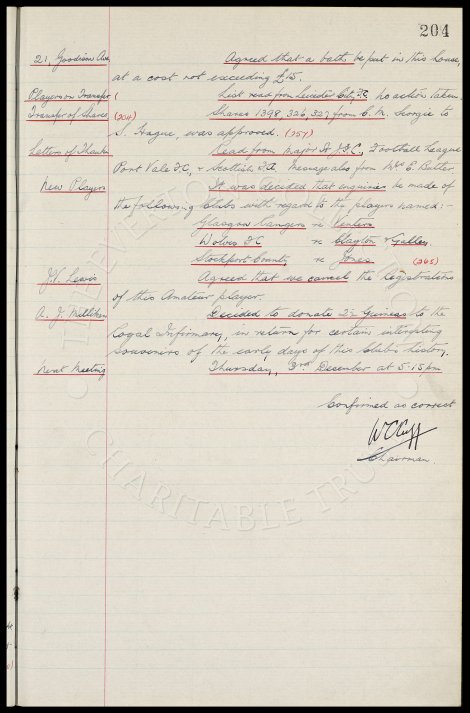 204
21, Goodison Ave. Agreed that a bath be put in this house,
at a cost not exceeding £15.
Players on Transfer ( List read from Leicester City F.C. no action taken
Transfer of Shares (204) Shares 1398, 326, 327, from C. N. George to
S. Frague, was approved. (257)
Letters of Thanks Read from Major , Football League
Port Vale F.C., & Scottish F.A. Message also from Mrs E. Butler
New Players It was decided that enquiries be made of
the following Clubs with regard to the players named:-
Glasgow Rangers re Venters
Wolves F.C re Clayton & Galley.
Stockport County re Jones. (265)
J.V. Lewis Agreed that we cancel the Registrations
of this Amateur player.
A. J. Millikin Decided to donate 25 Guineas to the
Royal Infirmary, in return for certain interesting
souvenirs of the early days of this Clubs history.
Next Meeting Thursday, 3rd December at 5.15 pm
Confirmed as correct
W C Cuff
Chairman.
CHARITABLE TRUST